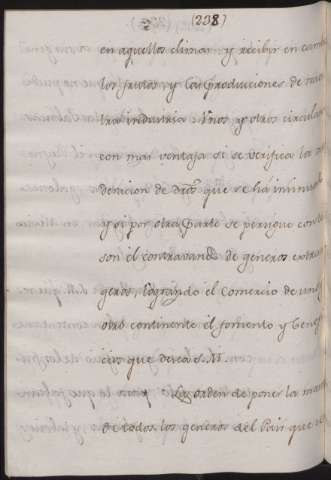 (238)
en aquellos climas y recibir en cambi
los frutos y las producciones de nues
tra industria. Unos y otros circular
con mas ventaja si se verifica la
denacion de dros que se há insinua
y si por otra parte se persigue con te
son el contravando de generos extran
geros, logrando el Comercio de uno y
otro continente el fomento y benefi
cios que desea S.M.
La orden de poner la mar
de todos los generos del Pais que se